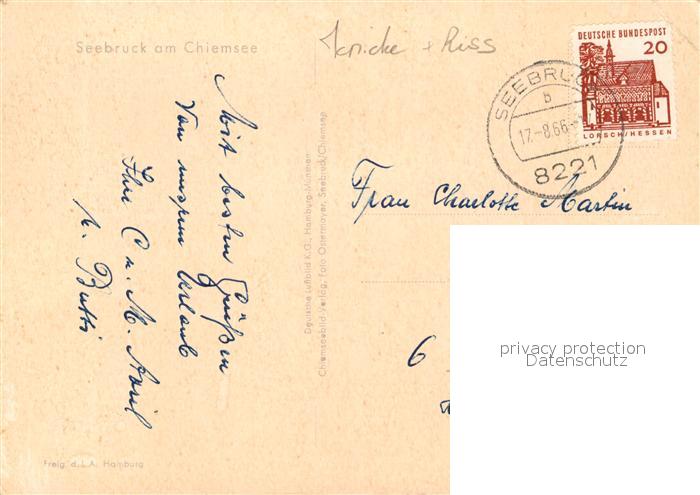 Seebruck am Chiemsee
Knicke + Riss
DEUTSCHE BUNDESPOST
20
LORSCH/HESSEN
SEEBRUCK
b
17.-8.66.-
8221
Mit besten Grüßen
Von unserem Urlaub
Ihre C u. M.
u. Butti
Frau Charlotte Martin
6
privacy protection
Datenschutz
Deutsche Luftbild K.G., Hamburg-München
Chiemseebild-Verlag, Foto Ostermayer, Seebruck/Chiemsee
Freig. d.L.A. Hamburg